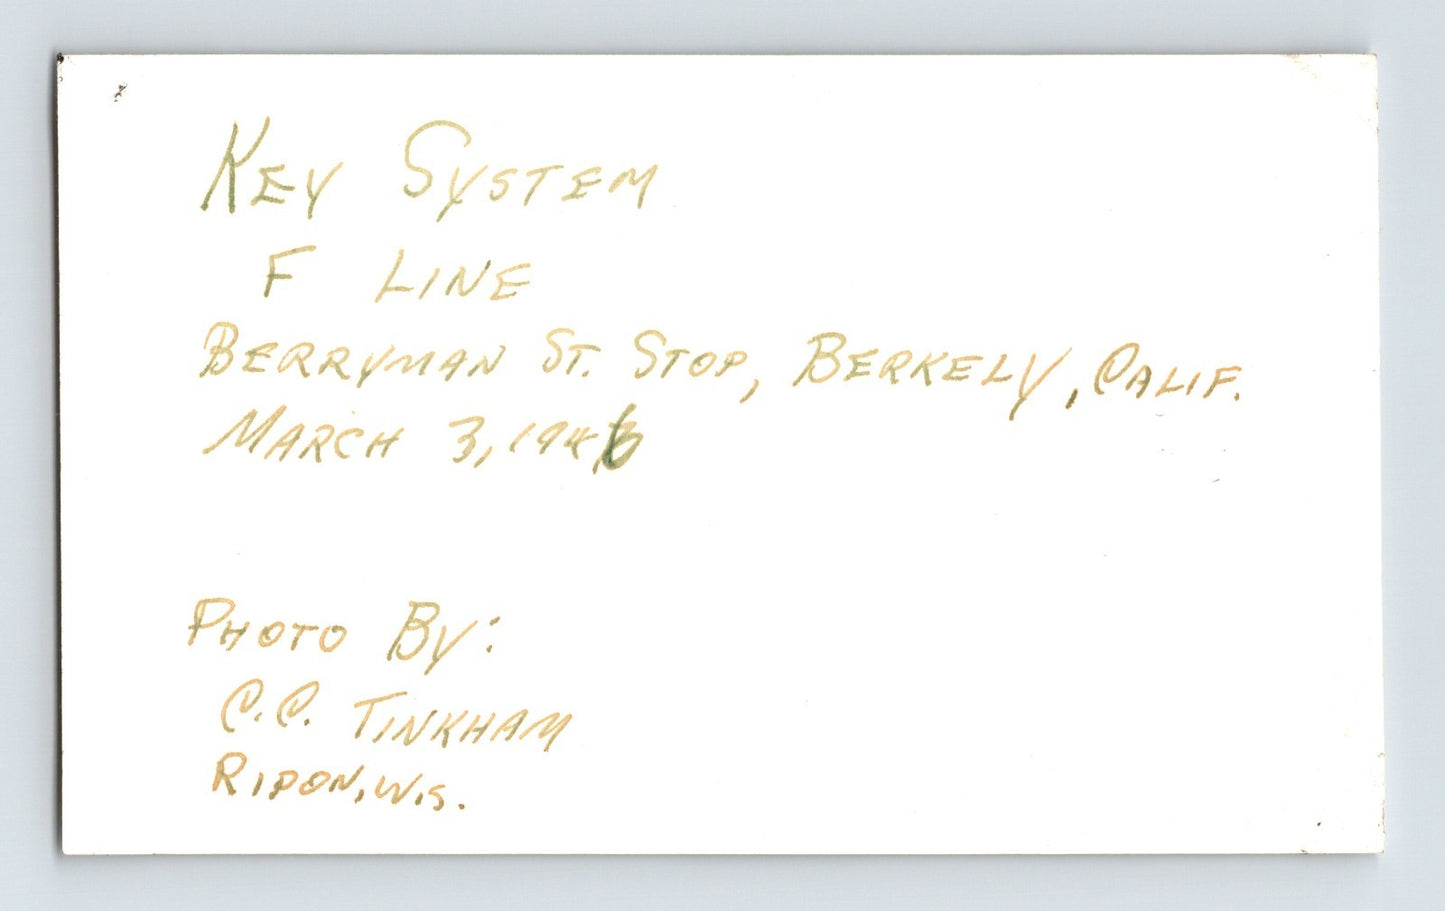 KEY SYSTEM
F LINE
BERRYMAN ST. STOP, BERKELY, CALIF.
MARCH 3, 1946
PHOTO BY:
C.C. TINKHAM
RIPON, WIS.